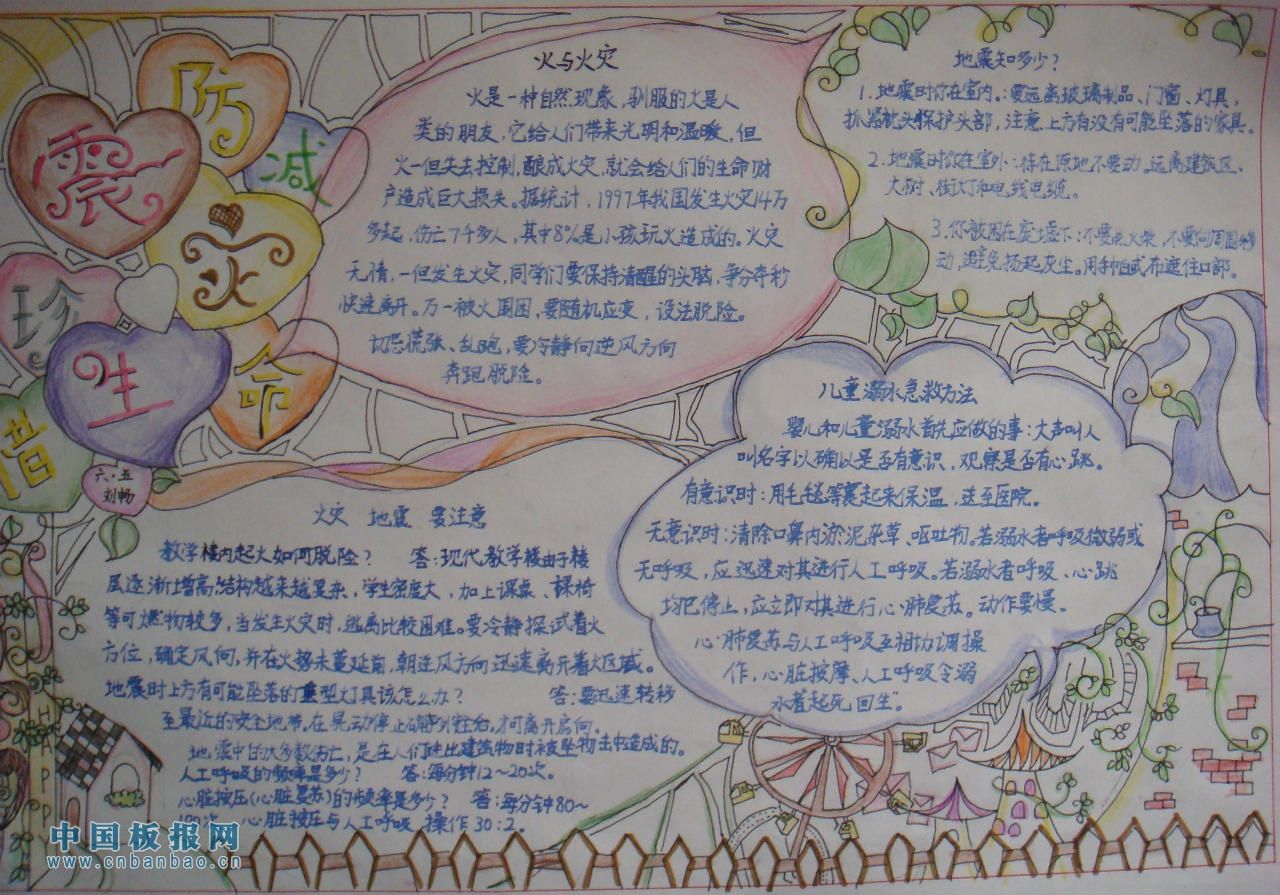 防
震
减
灾
珍
惜
生
命
六·五
刘畅
火与火灾
火是一种自然现象,驯服的火是人
类的朋友,它给人们带来光明和温暖,但
火一但失去控制,酿成火灾,就会给人们的生命财
产造成巨大损失。据统计,1997年我国发生火灾14万
多起,伤亡7千多人,其中8%是小孩玩火造成的。火灾
无情,一但发生火灾,同学们要保持清醒的头脑,争分夺秒
快速离开。万一被火围困,要随机应变,设法脱险。
切忌慌张、乱跑,要冷静向逆风方向
奔跑脱险。
地震知多少?
1.地震时你在室内。:要远离玻璃制品、门窗、灯具,
抓紧枕头保护头部,注意上方有没有可能坠落的家具。
2.地震时你在室外:待在原地不要动。远离建筑区、
大树、街灯和电线电缆。
3.你被困在废墟下:不要点火柴,不要向周围移
动,避免扬起灰尘。用手帕或布遮住口部。
儿童溺水急救方法
婴儿和儿童溺水首先应做的事:大声叫人
叫名字以确认是否有意识,观察是否有心跳。
有意识时:用毛毯等裹起来保温,送至医院。
无意识时:清除口鼻内淤泥杂草、呕吐物。若溺水者呼吸微弱或
无呼吸,应迅速对其进行人工呼吸。若溺水者呼吸、心跳
均已停止,应立即对其进行心肺复苏。动作要慢。
心肺复苏与人工呼吸互相协调操
作,心脏按摩、人工呼吸令溺
水者起死回生"
火灾 地震 要注意
教学楼内起火如何脱险? 答:现代教学楼由于楼
层逐渐增高,结构越来越复杂,学生密度大,加上课桌、椅
等可燃物较多,当发生火灾时,逃离比较困难。要冷静探试着火
方位,确定风向,并在火势未蔓延前,朝逆风方向迅速离开着火区域。
地震时上方有可能坠落的重型灯具该怎么办? 答:要迅速转移
至最近的安全地带。在晃动停止确定户外安全后,才可离开房间。
地震中的大多数伤亡,是在人们进出建筑物时被坠物击中造成的。
人工呼吸的频率是多少? 答:每分钟12~20次。
心脏按压(心脏复苏)的频率是多少? 答:每分钟80~
100次 心脏按压与人工呼吸 操作30:2。
HAPP
中国板报网
www.cnbanbao.cn